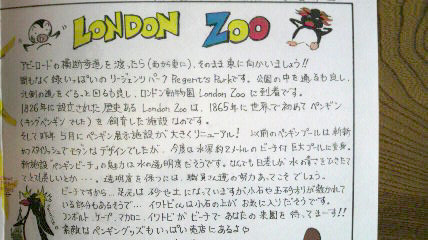 LONDON ZOO
アビーロードの横断歩道を渡ったら(わが家に)、そのまま東に向かいましょう!!
間もなく緑いっぱいのリージェンツパーク Regent's Parkです。公園の中を通るも良し、
北側の道をぐるっと回るも良し、ロンドン動物園 London Zoo に到着です。
1826年に設立された歴史ある London Zoo は、1865年に世界で初めてペンギン
(キングペンギン でした)を飼育した施設なのです。
そして昨年5月にペンギン展示施設が大きくリニューアル! 以前のペンギンプールは斬新
かつスタイリッシュでモダンなデザインでしたが、今度は水深約2メートルのビーチ付巨大プールに変身。
新施設"ペンギンビーチ"の魅力は水の透明度だそうです。なんでも
透明度を保つには、職員さん達の努力あってこそでしょう。
ビーチですから、足元は砂や土になっていますが小石や玉砂利が敷かれて
いる部分もあるそうで… イワトビくんは小石の上がお気に入りだそうです。
フンボルト、ケープ、マカロニ、イワトビ がビーチで あなたの来園を 待ってまーす!!
素敵なペンギングッズもいっぱい売店にあるよ♡